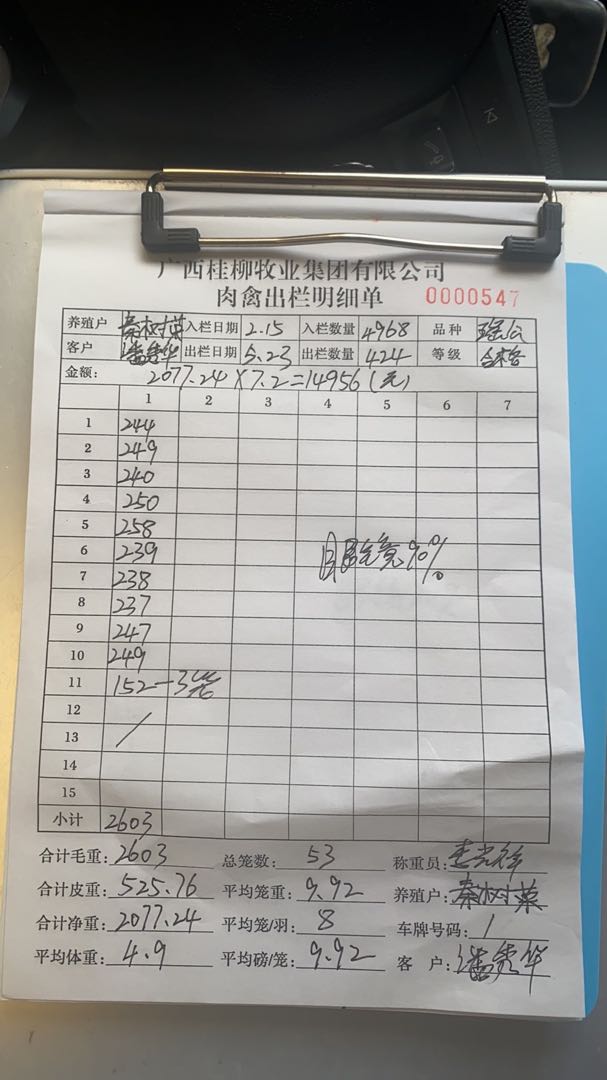 广西桂柳牧业集团有限公司
肉禽出栏明细单 0000547
养殖户 秦树菜 入栏日期 2.15 入栏数量 4968 品种 瑶公
客户 潘秀华 出栏日期 5.23 出栏数量 424 等级 合格
金额: 2077.24×7.2=14956(元)
1 2 3 4 5 6 7
1 244
2 249
3 240
4 250
5 258
6 239 90%
7 238
8 237
9 247
10 249
11 152-3笼
12
13 /
14
15
小计 2603
合计毛重: 2603 总笼数: 53 称重员:
合计皮重: 525.76 平均笼重: 9.92 养殖户: 秦树菜
合计净重: 2077.24 平均笼/羽: 8 车牌号码: /
平均体重: 4.9 平均磅/笼: 9.92 客 户: 潘秀华